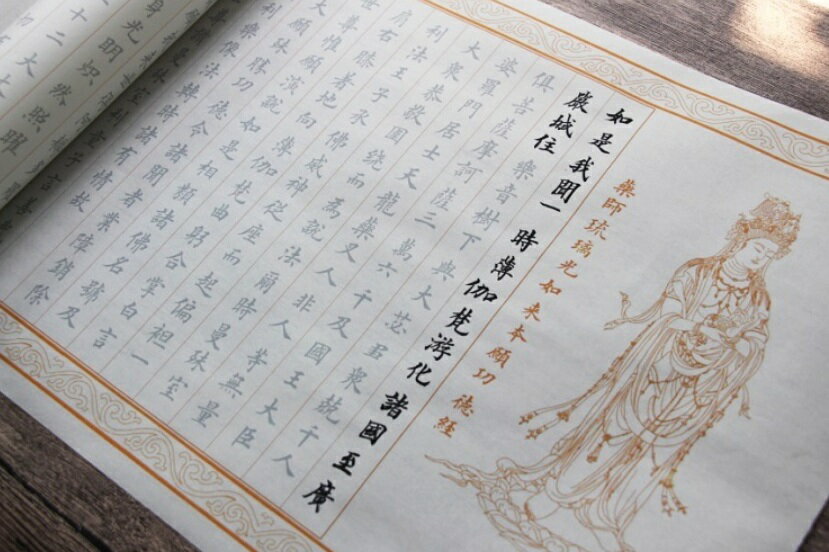 藥師琉璃光如来本願功德經
如是我聞一時薄伽梵游化諸國至廣
嚴城住樂音樹下與大苾芻衆八千人
俱菩薩摩訶薩三萬六千及國王大臣
婆羅門居士天龍藥叉人非人等無量
大衆恭敬圍繞而為說法爾時曼殊室
利法王子承佛威神從座而起偏袒一
肩右膝著地向薄伽梵曲躬合掌白言
世尊惟願演說如是相類諸佛名號及
大願殊勝功德令諸聞者業障銷除
樂像法轉時諸有情故
身光明熾然照曜
十二大